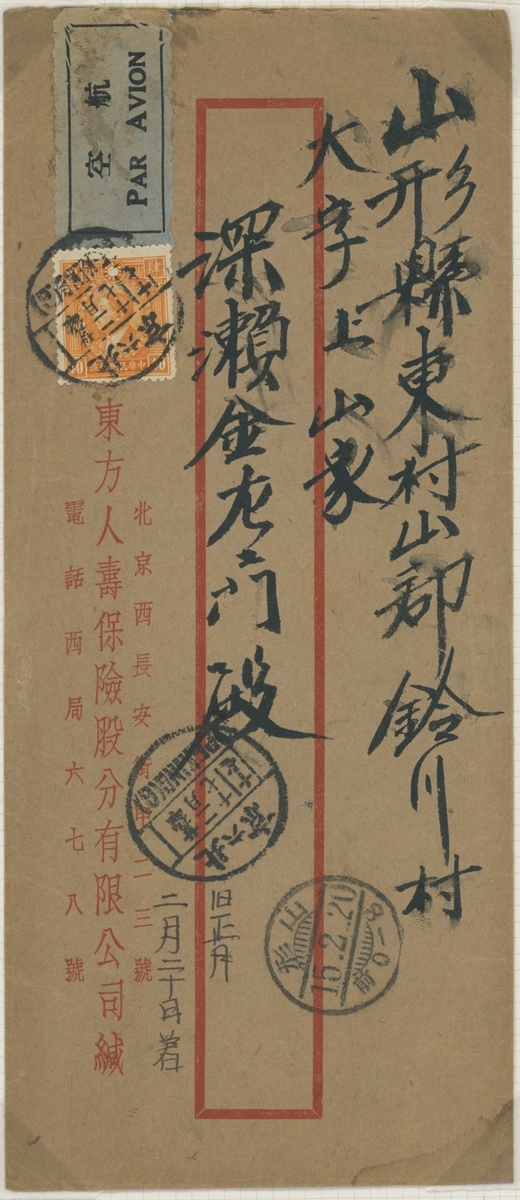 山形縣東村山郡鈴川村
大字上山家
深瀬金右门殿
北京西長安街甲一三號
東方人壽保險股分有限公司緘
電話西局六七八號
航空
PAR AVION
旧正月
二月二十日着
山形
15.2.20
前0-8